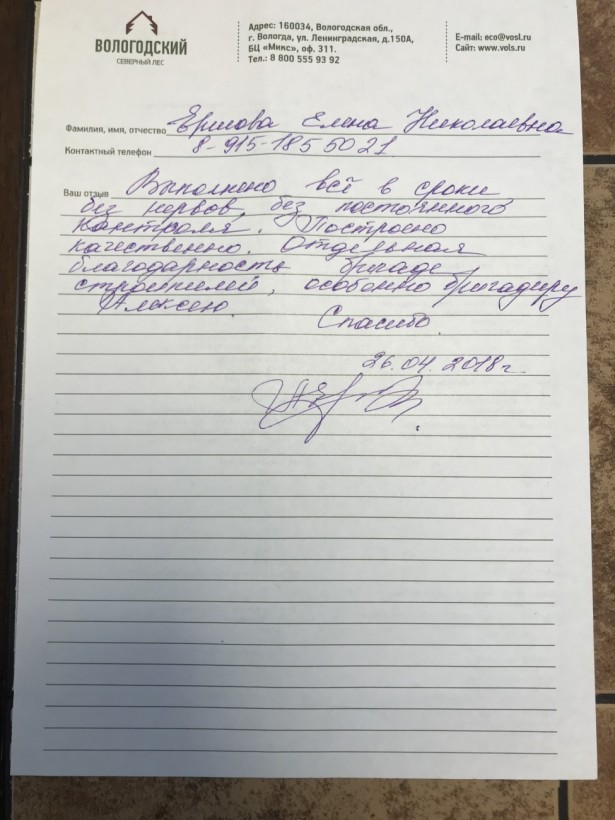 ВОЛОГОДСКИЙ
СЕВЕРНЫЙ ЛЕС
Адрес: 160034, Вологодская обл.,
г. Вологда, ул. Ленинградская, д.150А,
БЦ «Микс», оф. 311.
Тел.: 8 800 555 93 92
E-mail: eco@vosl.ru
Сайт: www.vols.ru
Фамилия, имя, отчество Ершова Елена Николаевна
Контактный телефон 8-915-185 50 21
Ваш отзыв Выполнено всё в сроки
без нервов, без постоянного
контроля. Построено
качественно. Отдельная
благодарность бригаде
строителей, особенно бригадиру
Алексею.
Спасибо.
26.04.2018 г.